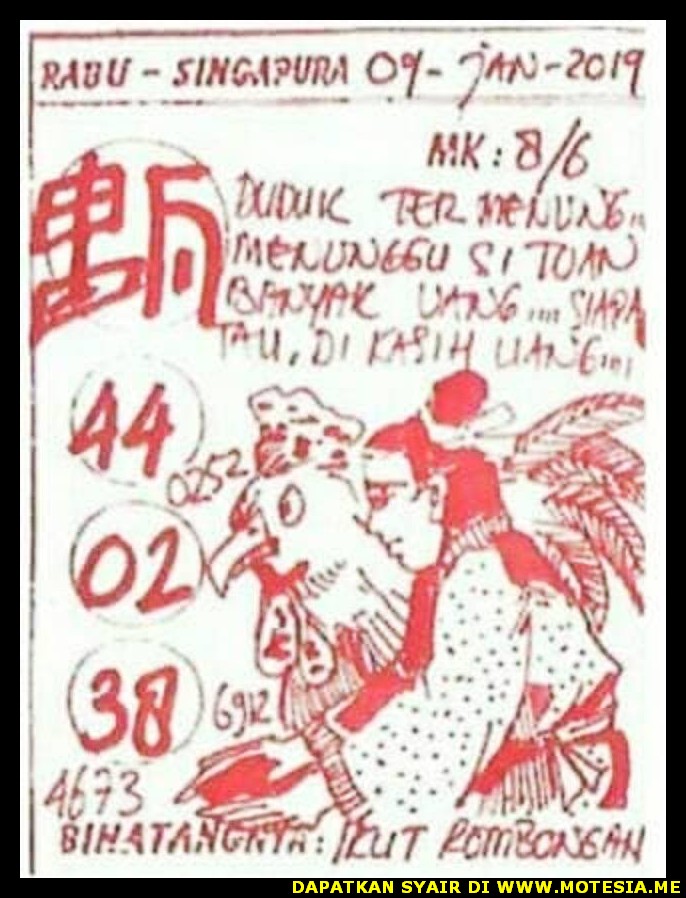 RABU - SINGAPURA 09-JAN-2019
MK: 8/6
DUDUK TERMENUNG...
MENUNGGU SI TUAN
BANYAK UANG.... SIAPA
TAU, DI KASIH UANG....
44
0252
02
38
6912
4673
BINATANGNYA: IKUT ROMBONGAN
DAPATKAN SYAIR DI WWW.MOTESIA.ME